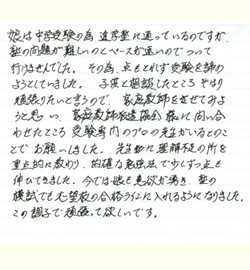 娘は中学受験の為 進学塾に通っているのですが、
塾の問題が難しいのとペースが速いのでついて
行けませんでした。その為、点もとれず受験を諦め
ようとしていました。子供と相談したところ やはり
頑張りたいと言うので、家庭教師をつけてみよ
うと思い、家庭教師派遣協会 様に問い合
わせたところ 受験専門のプロの先生がいるとのこ
とで お願いしました。先生に理解不足の所を
重点的に教わり、的確な勉強法で少しずつ点も
伸びてきました。今では娘も意欲が湧き、塾の
模試でも志望校の合格ラインに入れるようになりました。
この調子で頑張って欲しいです。